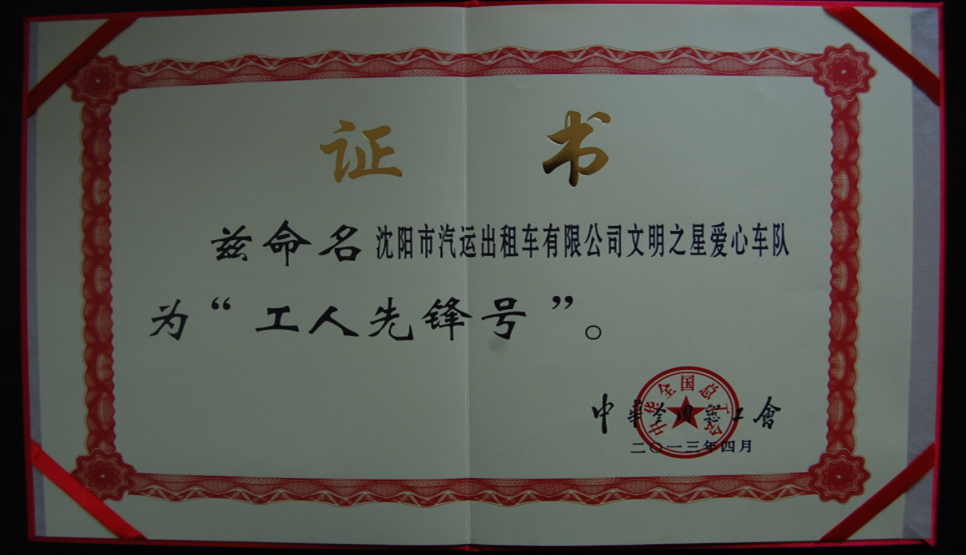 证书
兹命名沈阳市汽运出租车有限公司文明之星爱心车队
为“工人先锋号”。
中華全國總工會
中华全国总工会
二〇一三年四月